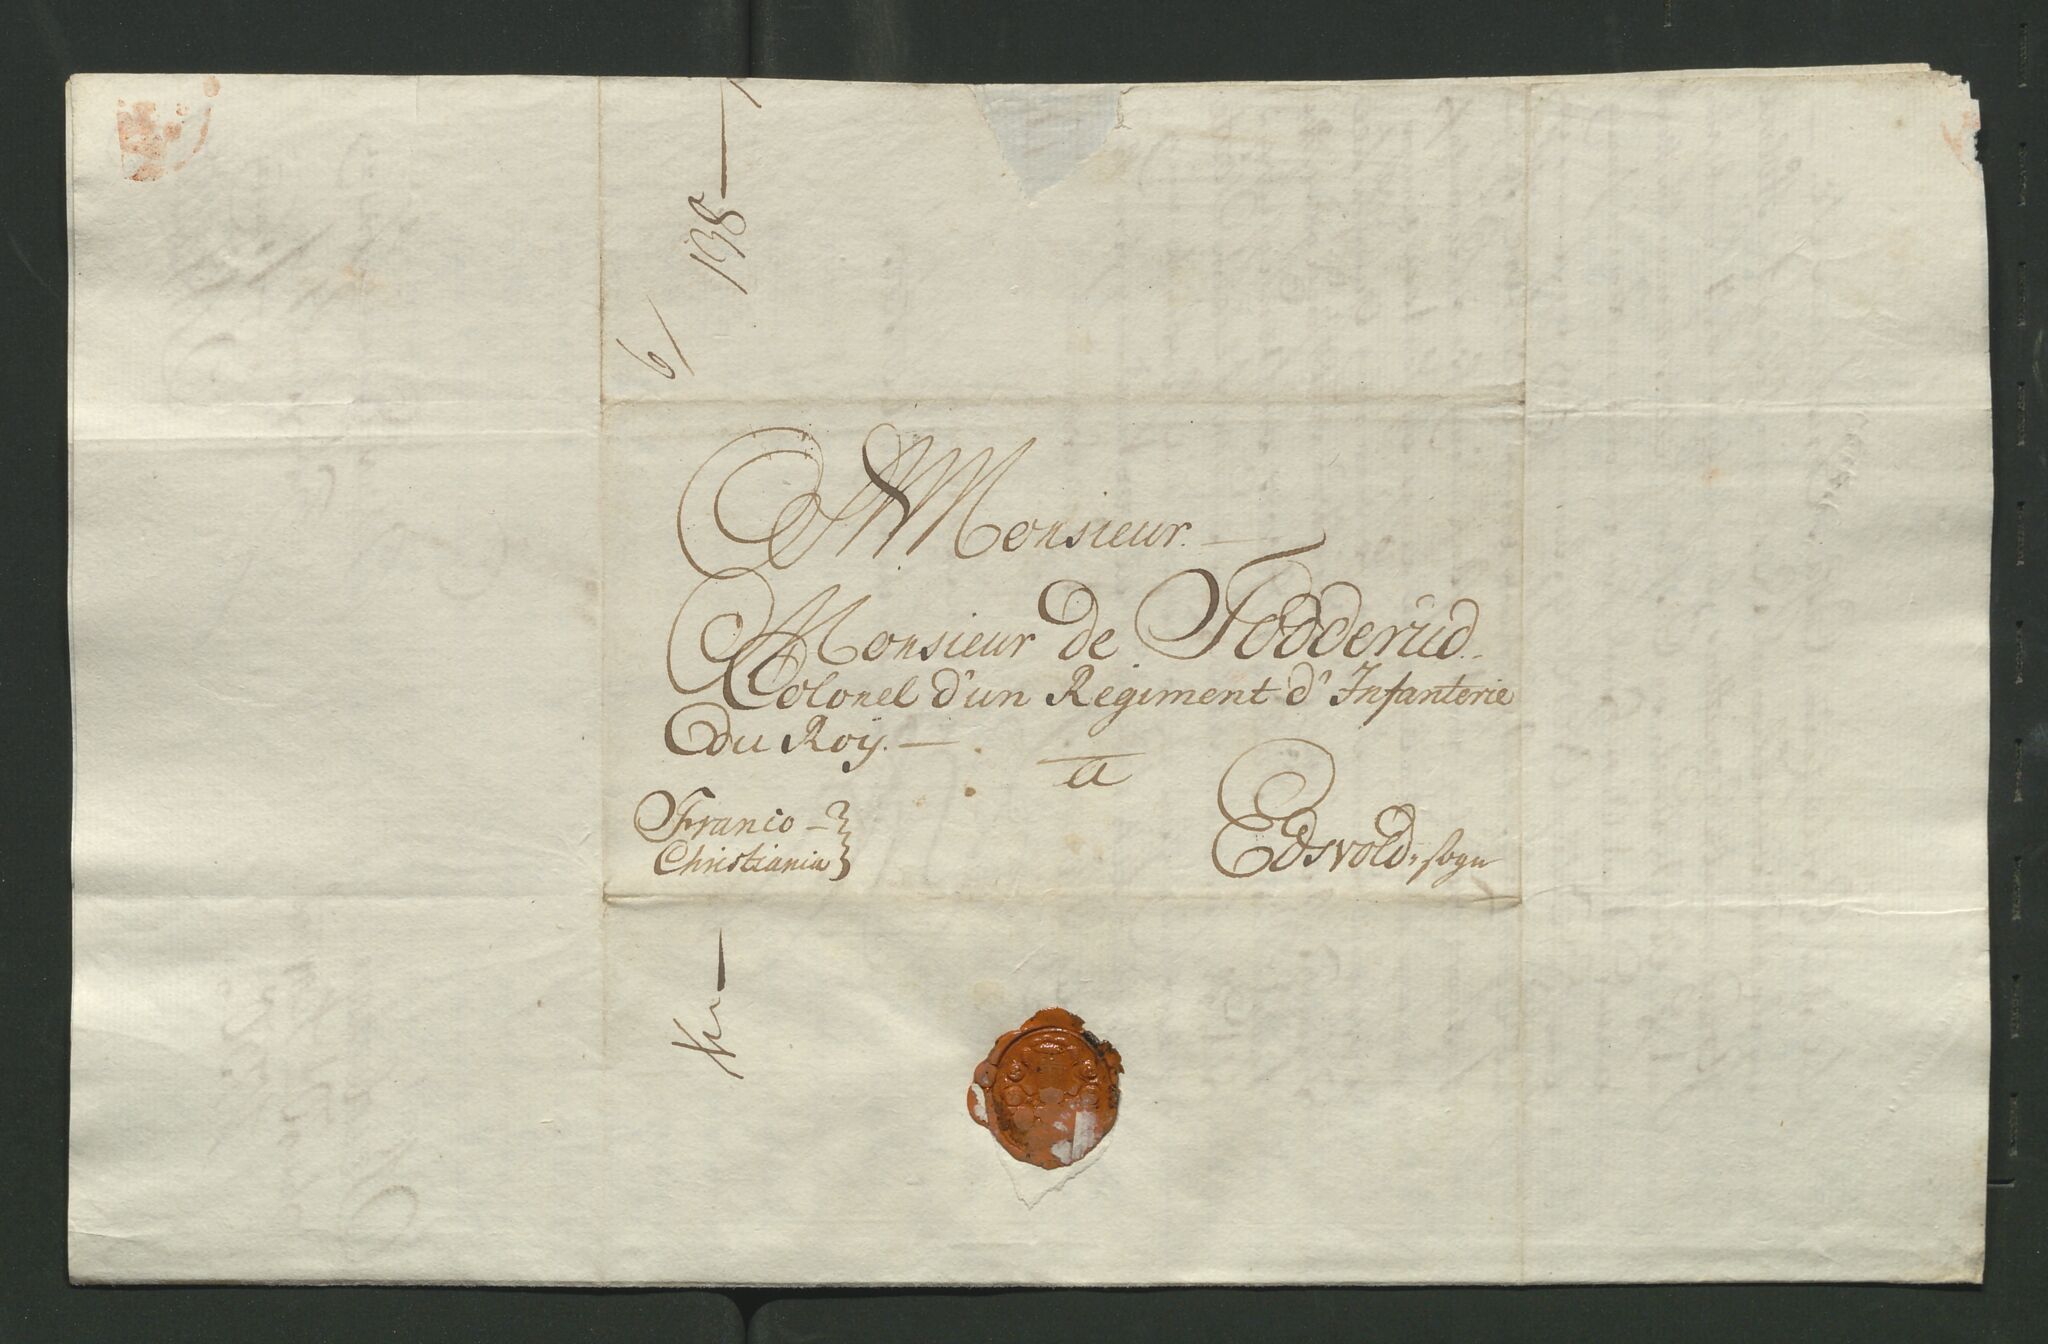 138
6/
Monsieur.
Monsieur de Fodderud.
Colonel d'un Regiment d'Infanterie
du Roÿ.
a
Franco
Christiania
Edsvold, sogn